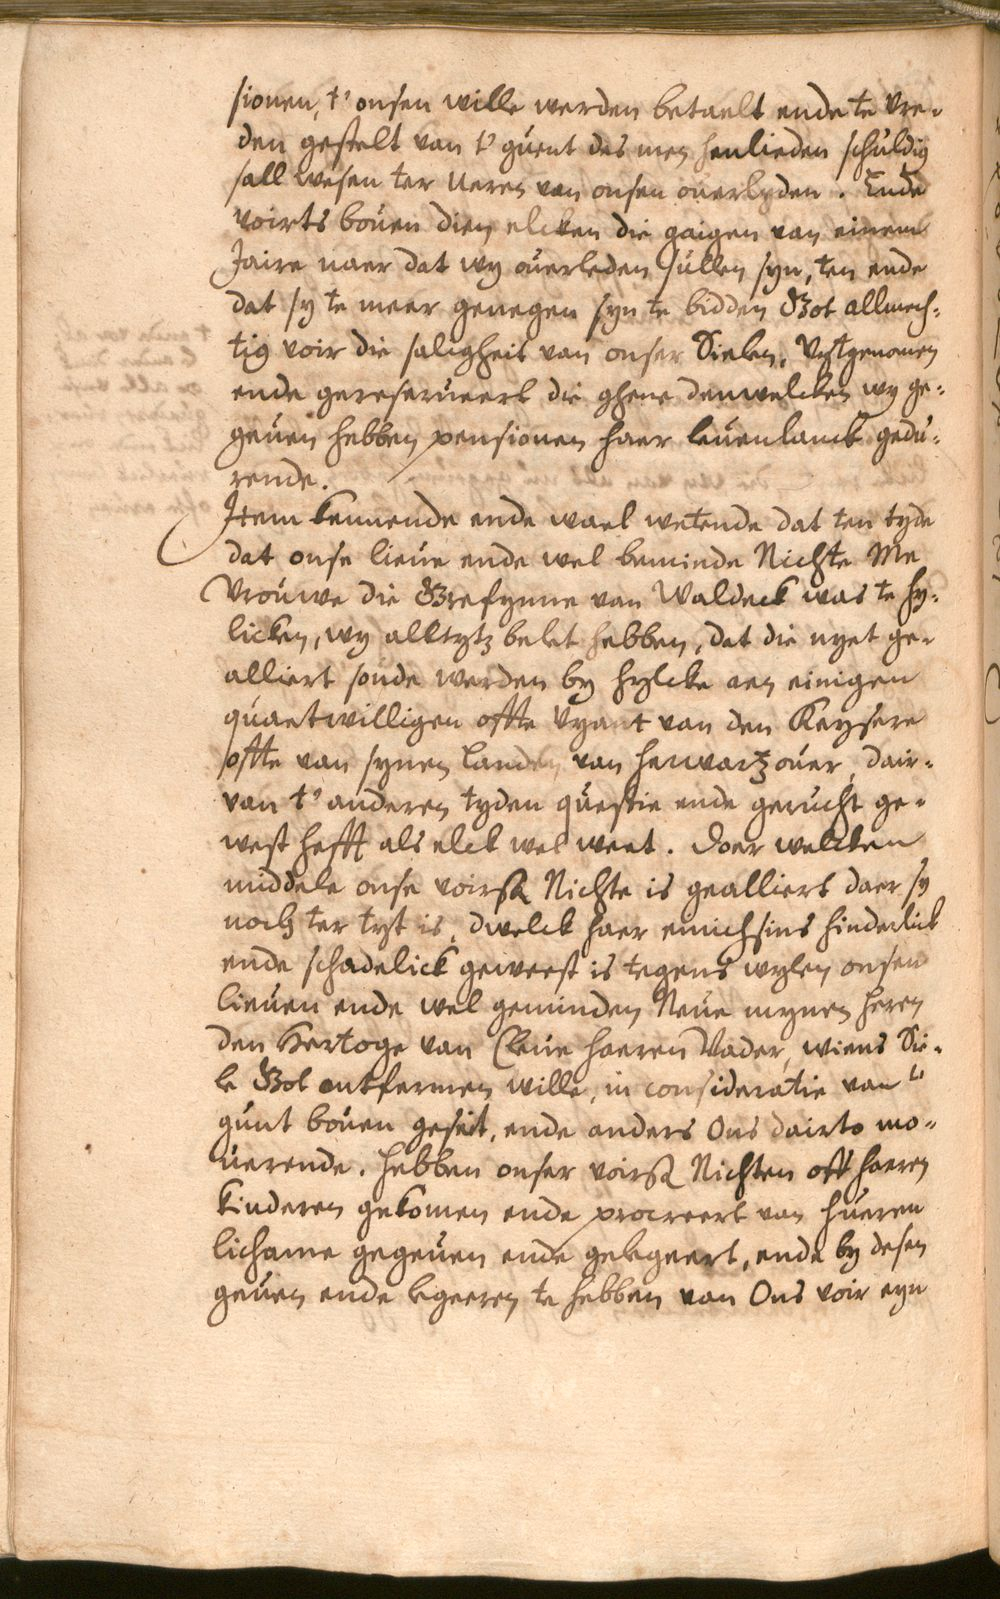 sionen, t' onsen wille werden betaelt ende te vre-
den gestelt van t' guent des men henlieden schuldig
sall wesen ter ueren van onsen ouerlyden. Ende
voirts bouen dien elcken die gaigen van einem
Jaire naer dat wy ouerleden sullen syn, ten ende
dat sy te meer genegen syn te bidden Got allmech-
tig voir die saligheit van onser Sielen. Vytgenomen
ende gereserueert die ghene denwelcken wy ge-
geuen hebben pensionen haer leuenlanck gedu-
rende.
Item kennende ende wael wetende dat ten tyde
dat onse lieue ende wel beminde Nichte Me
Vrouwe die Grefynne van Waldeck was te hy-
licken, wy alltytz belet hebben, dat die nyet ge-
alliert soude werden by hylcke aen einigen
quaetwilligen offte vyant van den Keysere
offte van synen Landen van herwartz ouer, dair-
van t' anderen tyden questie ende gerucht ge-
west hefft als elck wel weet. Doer welcken
middele onse voirsz Nichte is gealliert daer sy
noch ter tyt is, dwelck haer einichsins hinderlick
ende schadelick geweest is tegens wylen onsen
lieuen ende wel geminden Neue mynen heren
den Hertoge van Cleue haeren Vader, wiens Sie-
le Got ontfermen wille, in consideratie van 't
gunt bouen geseit, ende anders Ons dairto mo-
uerende. Hebben onser voirsz Nichten oft haeren
kinderen gekomen ende procreert van hueren
lichame gegeuen ende gelegeert, ende by desen
geuen ende legeeren te hebben van Ons voir eyn